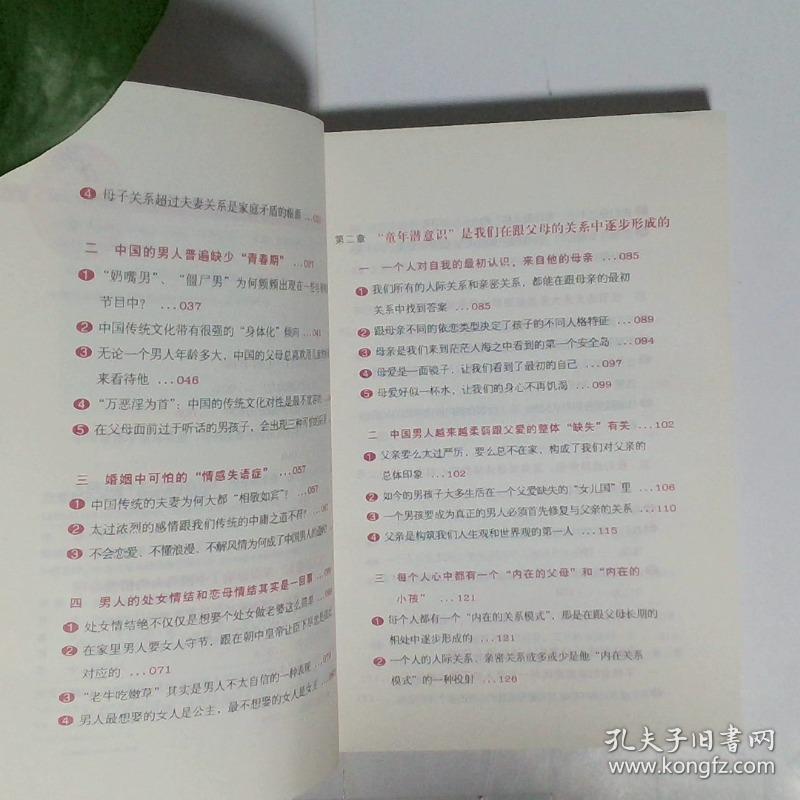 4 母子关系超过夫妻关系是家庭矛盾的根源
二 中国的男人普遍缺少“青春期” ...031
1 “奶嘴男”、“僵尸男”为何频频出现在一些
节目中? ...037
2 中国传统文化带有很强的“身体化”倾向 ...041
3 无论一个男人年龄多大，中国的父母总喜欢用
来看待他 ...046
4 “万恶淫为首”：中国的传统文化对性是最不宽容的
5 在父母面前过于听话的男孩子，会出现三种可怕的
三 婚姻中可怕的“情感失语症” ...057
1 中国传统的夫妻为何大都“相敬如宾”? ...057
2 太过浓烈的感情跟我们传统的中庸之道不符?
3 不会恋爱、不懂浪漫、不解风情为何成了中国男人的
四 男人的处女情结和恋母情结其实是一回事
1 处女情结绝不仅仅是想娶个处女做老婆这么简单
2 在家里男人要女人守节，跟在朝中皇帝让臣下尽忠是
对应的 ...071
3 “老牛吃嫩草”其实是男人不太自信的一种表现
4 男人最想娶的女人是公主，最不想娶的女人是女王
第二章 “童年潜意识”是我们在跟父母的关系中逐步形成的
一 一个人对自我的最初认识，来自他的母亲 ...085
1 我们所有的人际关系和亲密关系，都能在跟母亲的最初
关系中找到答案 ...085
2 跟母亲不同的依恋类型决定了孩子的不同人格特征 ...089
3 母亲是我们来到茫茫人海之中看到的第一个安全岛 ...094
4 母爱是一面镜子，让我们看到了最初的自己 ...097
5 母爱好似一杯水，让我们的身心不再饥渴 ...099
二 中国男人越来越柔弱跟父爱的整体“缺失”有关 ...102
1 父亲要么太过严厉，要么总不在家，构成了我们对父亲的
总体印象 ...102
2 如今的男孩子大多生活在一个父爱缺失的“女儿国”里 ...106
3 一个男孩要成为真正的男人必须首先修复与父亲的关系 ...110
4 父亲是构筑我们人生观和世界观的第一人 ...115
三 每个人心中都有一个“内在的父母”和“内在的
小孩” ...121
1 每个人都有一个“内在的关系模式”，那是在跟父母长期的
相处中逐步形成的 ...121
2 一个人的人际关系、亲密关系或多或少是他“内在关系
模式”的一种投射 ...126
孔夫子旧书网
www.kongfz.com